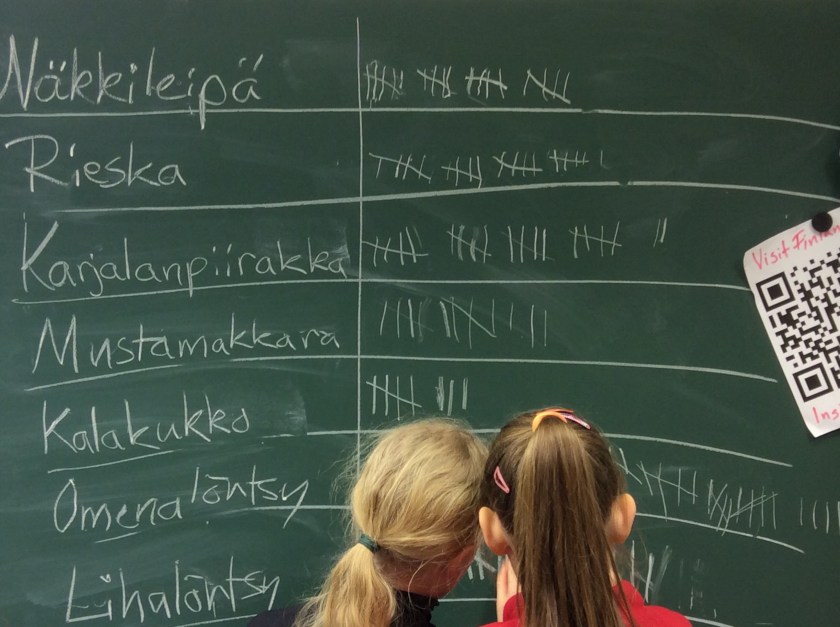 Näkkileipä
Rieska
Karjalanpiirakka
Mustamakkara
Kalakukko
Omenalöntsy
Lihalöntsy
Visit Finlan
Insi